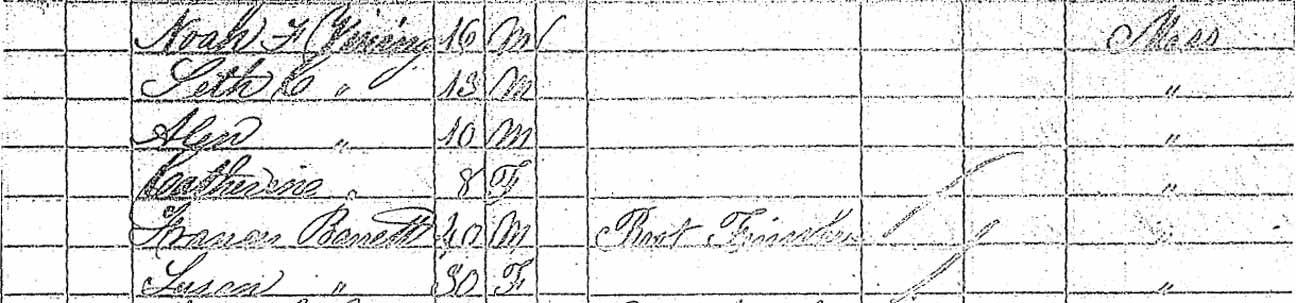 Noah F Vining 16 M Mass
Seth C " 13 M "
Alen " 10 M "
Catherine " 8 F "
Francis Bennett 40 M Boot Finisher "
Susan " 30 F "